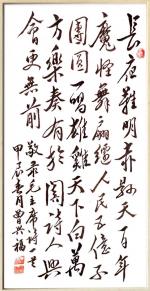 長夜難明赤縣天百年
魔怪舞翩躚人民五億不
團圓一唱雄雞天下白萬
方樂奏有於闐詩人興
會更無前
敬录毛主席诗一首
甲辰春月曾兴福